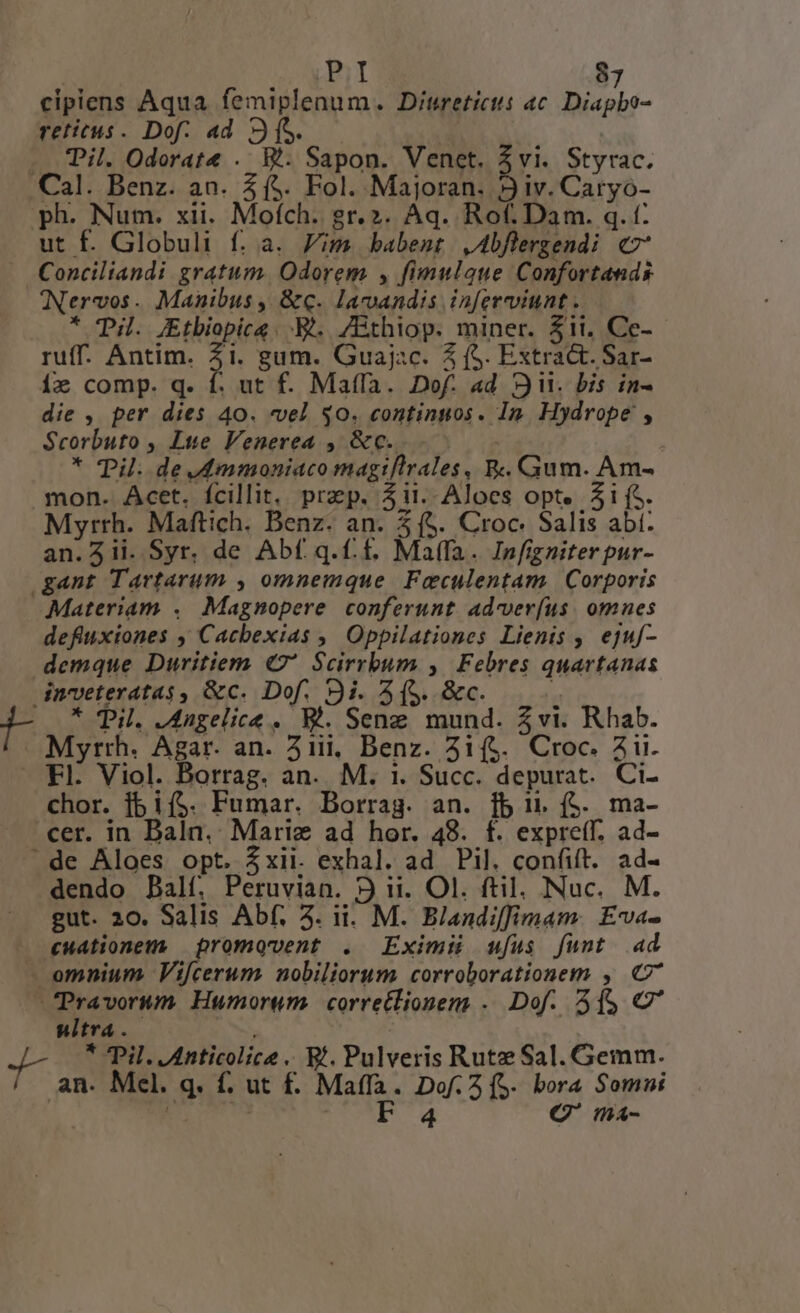 PI 87
cipiens Aqua ſemiplenum. Diureticus ac Diapho-
reticus. Doſ. ad ℈ ß.
Pil. Odoratæ. ℞. Sapon. Venet. ℥vi. Styrac.
Cal. Benz. an. ℥ß. Fol. Majoran. ℈iv. Caryo-
ph. Num. xii. Moſch. gr.2. Aq. Roſ. Dam. q.ſ.
ut f. Globuli ſ. a. Vim habent Abſtergendi &
Conciliandi gratum Odorem, ſimulque Confortandi
Nervos. Manibus, &c. lavandis inſerviunt.
* Pil. Æthiopicæ. ℞. Æthiop. miner. ℥ii. Ce-
ruſſ. Antim. ℥i. gum. Guajac. ℥ß. Extract. Sar-
ſæ comp. q. ſ. ut f. Maſſa. Doſ. ad ℈ii. bis in-
die, per dies 40. vel 50. continuos. In Hydrope,
Scorbuto, Lue Venerea, &c.
* Pil. de Ammoniaco magiſtrales, ℞. Gum. Am-
mon. Acet. ſcillit. præp. ℥ii. Aloes opt. ℥iß.
Myrrh. Maſtich. Benz. an. ℥ß. Croc. Salis abſ.
an. ʒii. Syr. de Abſ q.ſ.f. Maſſa. Inſigniter pur-
gant Tartarum, omnemque Fæculentam Corporis
Materiam. Magnopere conferunt adverſus omnes
defluxiones, Cachexias, Oppilationes Lienis, ejuſ-
demque Duritiem & Scirrhum, Febres quartanas
inveteratas, &c. Doſ. ℈i. ʒß. &c.
* Pil. Angelicæ. ℞. Senæ mund. ℥vi. Rhab.
Myrrh. Agar. an. ʒiii. Benz. ʒiß. Croc. ʒii.
Fl. Viol. Borrag. an. M. i. Succ. depurat. Ci-
chor. ℔iß. Fumar. Borrag. an. ℔ii.ß. ma-
cer. in Baln. Mariæ ad hor. 48. f. expreſſ. ad-
de Aloes opt. ℥xii. exhal. ad Pil. conſiſt. ad-
dendo Balſ. Peruvian. ℈ii. Ol. ſtil. Nuc. M.
gut. 20. Salis Abſ. ʒ. ii. M. Blandiſſimam Eva-
cuationem promovent. Eximii uſus ſunt ad
omnium Viſcerum nobiliorum corroborationem, &
Pravorum Humorum correctionem. Doſ. ʒß &
ultra.
* Pil. Anticolicæ. ℞. Pulveris Rutæ Sal. Gemm.
an. Mel. q. ſ. ut f. Maſſa. Doſ. ʒß. hora Somni
F 4 & ma-